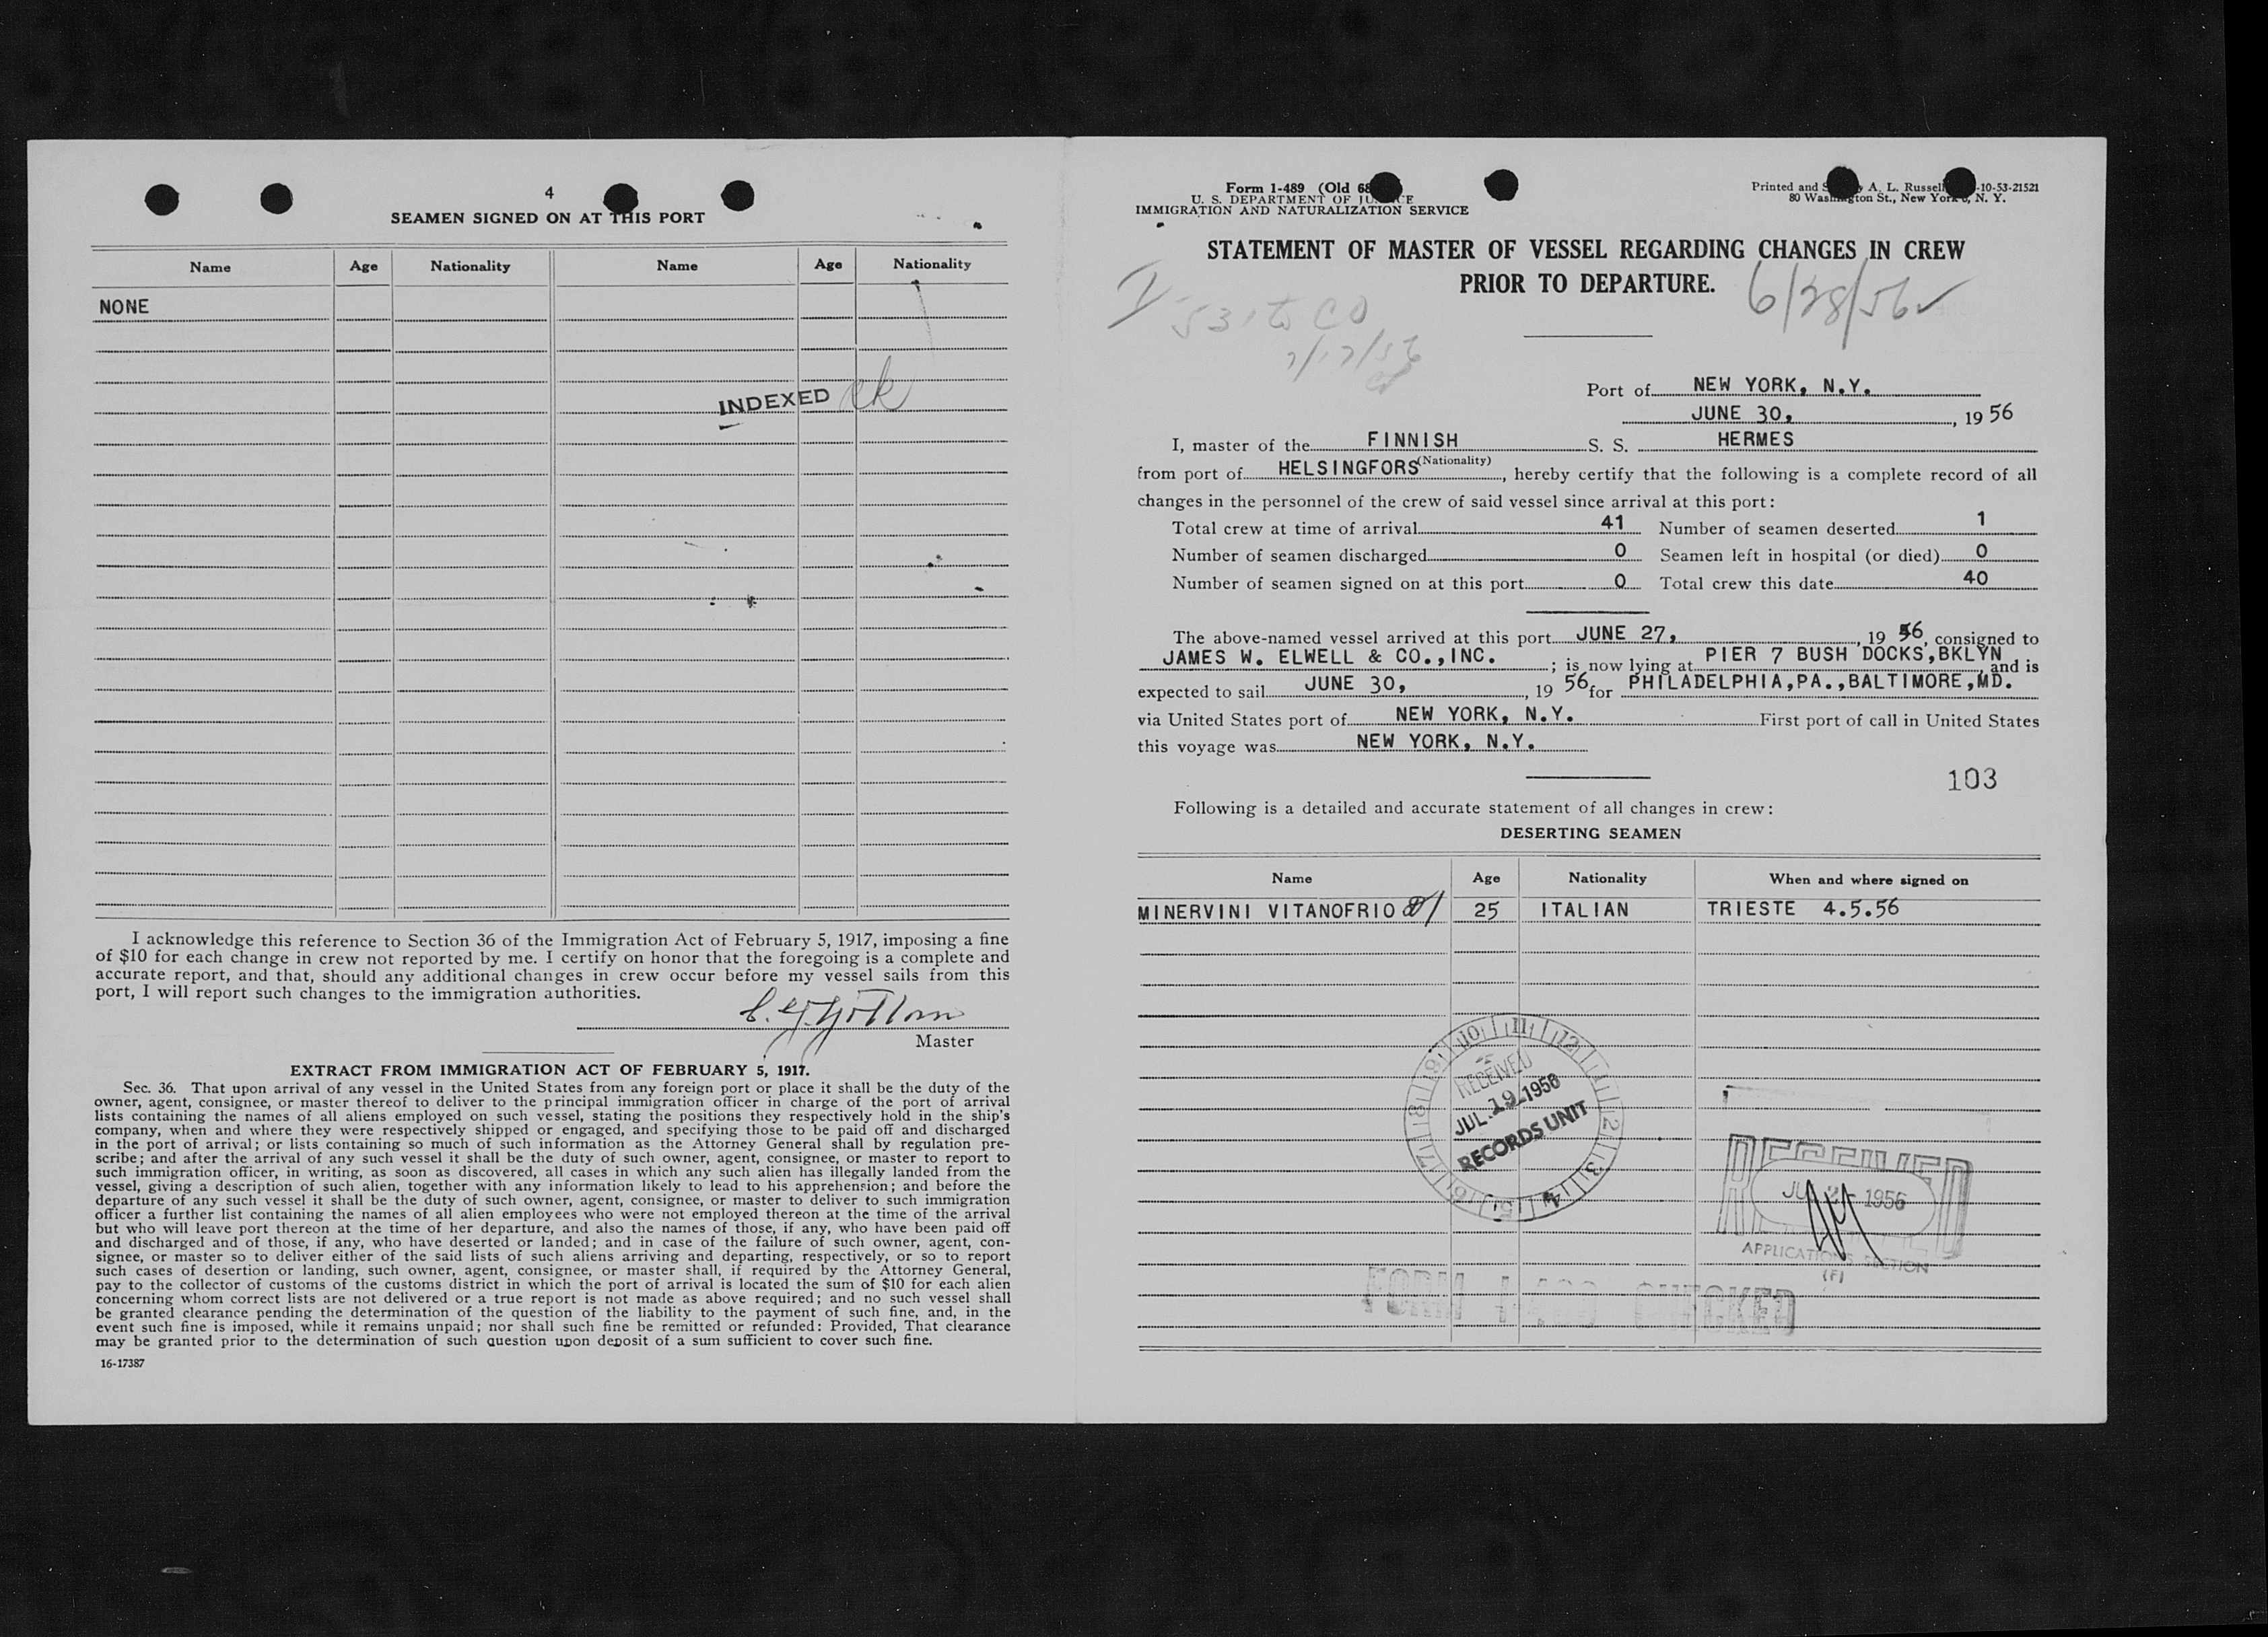 4
SEAMEN SIGNED ON AT THIS PORT
Name Age Nationality Name Age Nationality
NONE
INDEXED
I acknowledge this reference to Section 36 of the Immigration Act of February 5, 1917, imposing a fine
of $10 for each change in crew not reported by me. I certify on honor that the foregoing is a complete and
accurate report, and that, should any additional changes in crew occur before my vessel sails from this
port, I will report such changes to the immigration authorities.
Master
EXTRACT FROM IMMIGRATION ACT OF FEBRUARY 5, 1917.
Sec. 36. That upon arrival of any vessel in the United States from any foreign port or place it shall be the duty of the
owner, agent, consignee, or master thereof to deliver to the principal immigration officer in charge of the port of arrival
lists containing the names of all aliens employed on such vessel, stating the positions they respectively hold in the ship's
company, when and where they were respectively shipped or engaged, and specifying those to be paid off and discharged
in the port of arrival; or lists containing so much of such information as the Attorney General shall by regulation pre-
scribe; and after the arrival of any such vessel it shall be the duty of such owner, agent, consignee, or master to report to
such immigration officer, in writing, as soon as discovered, all cases in which any such alien has illegally landed from the
vessel, giving a description of such alien, together with any information likely to lead to his apprehension; and before the
departure of any such vessel it shall be the duty of such owner, agent, consignee, or master to deliver to such immigration
officer a further list containing the names of all alien employees who were not employed thereon at the time of the arrival
but who will leave port thereon at the time of her departure, and also the names of those, if any, who have been paid off
and discharged and of those, if any, who have deserted or landed; and in case of the failure of such owner, agent, con-
signee, or master so to deliver either of the said lists of such aliens arriving and departing, respectively, or so to report
such cases of desertion or landing, such owner, agent, consignee, or master shall, if required by the Attorney General,
pay to the collector of customs of the customs district in which the port of arrival is located the sum of $10 for each alien
concerning whom correct lists are not delivered or a true report is not made as above required; and no such vessel shall
be granted clearance pending the determination of the question of the liability to the payment of such fine, and, in the
event such fine is imposed, while it remains unpaid; nor shall such fine be remitted or refunded: Provided, That clearance
may be granted prior to the determination of such question upon deposit of a sum sufficient to cover such fine.
16-17387
Form 1-489 (Old 68
U. S. DEPARTMENT OF JUSTICE
IMMIGRATION AND NATURALIZATION SERVICE
Printed and A. L. Russell -10-53-21521
80 Washington St., New York 6, N. Y.
STATEMENT OF MASTER OF VESSEL REGARDING CHANGES IN CREW
PRIOR TO DEPARTURE.
6/28/56
Port of NEW YORK, N.Y.
JUNE 30, , 19 56
I, master of the FINNISH S. S. HERMES
(Nationality)
from port of HELSINGFORS , hereby certify that the following is a complete record of all
changes in the personnel of the crew of said vessel since arrival at this port:
Total crew at time of arrival 41 Number of seamen deserted 1
Number of seamen discharged 0 Seamen left in hospital (or died) 0
Number of seamen signed on at this port 0 Total crew this date 40
The above-named vessel arrived at this port JUNE 27, , 19 56, consigned to
JAMES W. ELWELL & CO.,INC. ; is now lying at PIER 7 BUSH DOCKS,BKLYN and is
expected to sail JUNE 30, , 19 56 for PHILADELPHIA,PA.,BALTIMORE,MD.
via United States port of NEW YORK, N.Y. First port of call in United States
this voyage was NEW YORK, N.Y.
103
Following is a detailed and accurate statement of all changes in crew:
DESERTING SEAMEN
Name Age Nationality When and where signed on
MINERVINI VITANOFRIO 25 ITALIAN TRIESTE 4.5.56
RECEIVED
JUL 19 1956
RECORDS UNIT
RECEIVED
1956
APPLICATIONS SECTION
(F)
FORM CHECKED